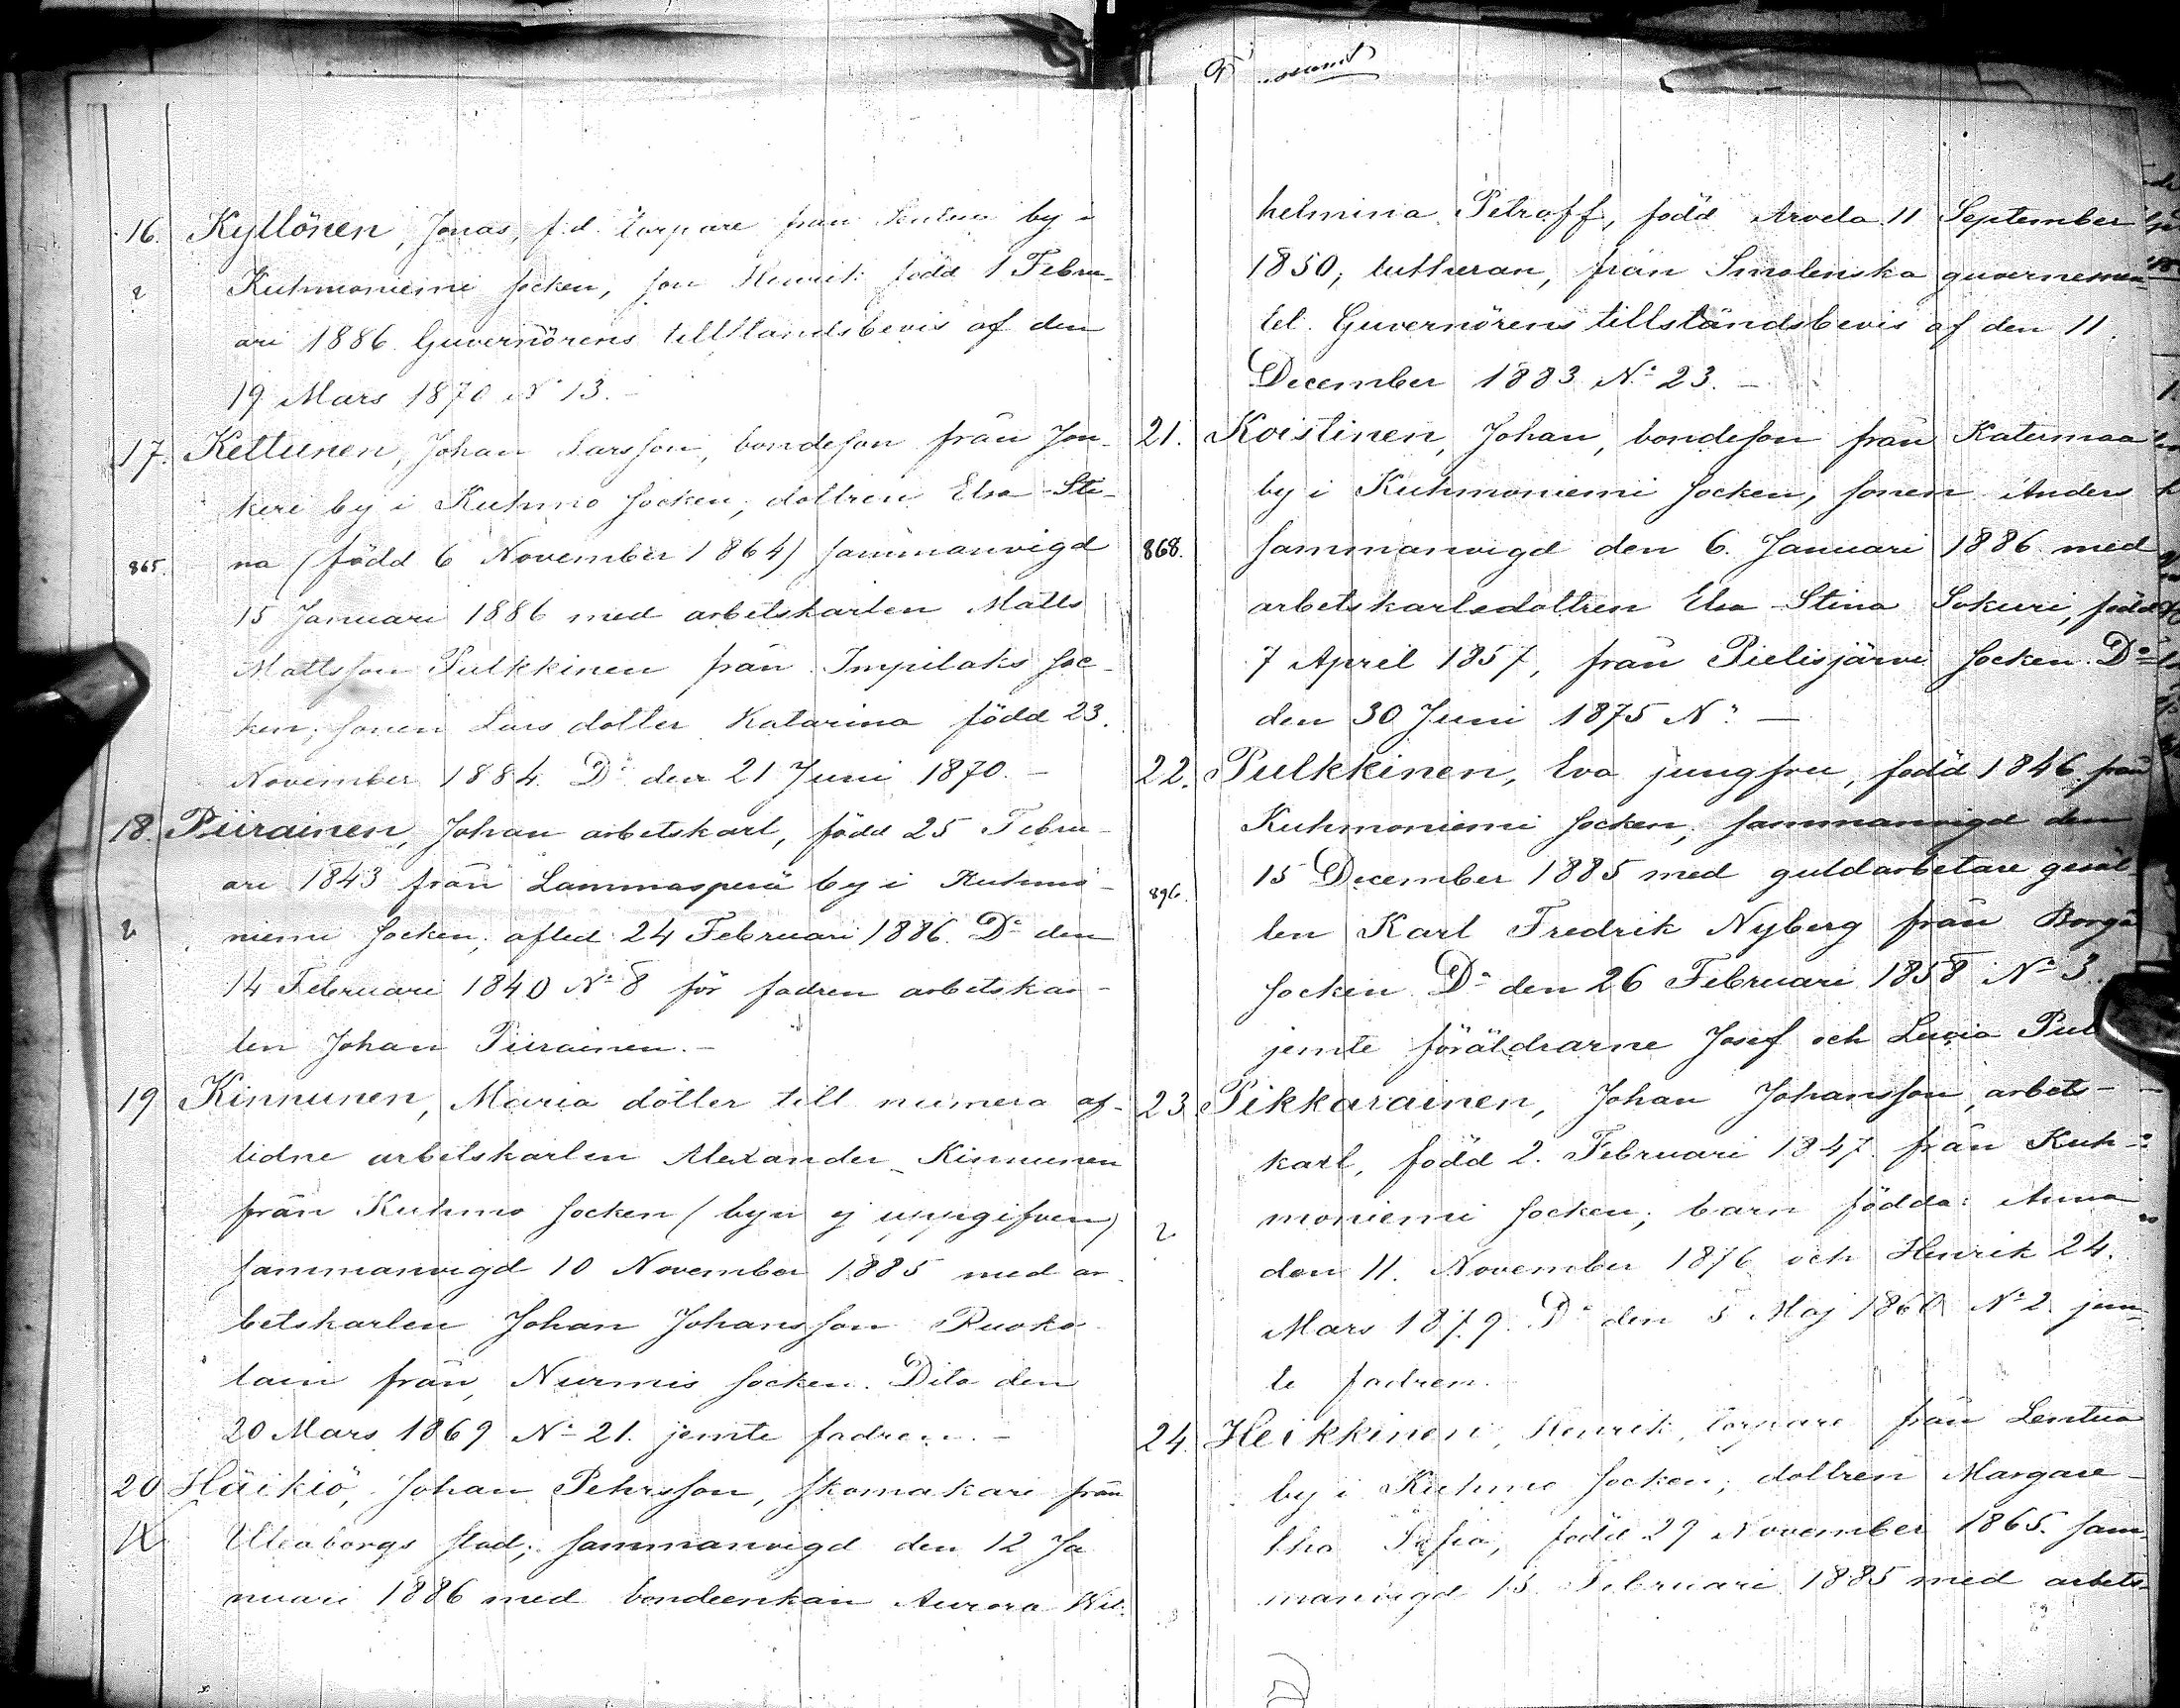 16. Kyllönen, Jonas, f.d. torpare från Lentua by i
Kuhmoniemi socken, son Henrik född 1 Febru-
2
ari 1886. Guvernörens tillståndsbevis af den
19 Mars 1870 No 13. -
17. Kettunen, Johan Larsson, bondeson från Jon-
keri by i Kuhmo socken; dottren Elsa Sti-
865. na (född 6 November 1864) sammanvigd
15 Januari 1886 med arbetskarlen Matts
Mattsson Pulkkinen från Impilaks soc-
ken; sonen Lars dotter Katarina född 23.
November 1884. Do den 21 Juni 1870. -
18. Piirainen, Johan arbetskarl, född 25 Febru-
ari 1843 från Lammasperä by i Kuhmo-
2 niemi socken; afled 24 Februari 1886. Do den
14 Februari 1840 No 8 för fadren arbetskar-
len Johan Piirainen. -
19 Kinnunen, Maria dotter till numera af-
lidne arbetskarlen Alexander Kinnunen
från Kuhmo socken (byn ej uppgifven)
sammanvigd 10 November 1885 med ar-
betskarlen Johan Johansson Ruoko-
lain från Nurmis socken. Dito den
20 Mars 1869 No 21. jemte fadren. -
20 Häikiö, Johan Pehrsson, skomakare från
Uleåborgs stad; sammanvigd den 12 Ja
nuari 1886 med bondeenkan Aurora Wil-
helmina Petroff, född Arvela 11 September
1850; lutheran, från Smolenska guvernemen-
tet. Guvernörens tillståndsbevis af den 11.
December 1883 No 23. -
21. Koistinen, Johan, bondeson från Katermaa
by i Kuhmoniemi socken, sonen Anders
868. sammanvigd den 6. Januari 1886 med
arbetskarlsdottren Elsa Stina Sokuri, född
7 April 1857, från Pielisjärvi socken. Do
den 30 Juni 1875 No -
22. Pulkkinen, Eva jungfru, född 1846 från
Kuhmoniemi socken; sammanvigd den
896. 15 December 1885 med guldarbetare gesäl-
len Karl Fredrik Nyberg från Borgå
socken. Do den 26 Februari 1858 No 3.
jemte föräldrarne Josef och Lucia Pul
23 Pikkarainen, Johan Johansson, arbets-
karl, född 2. Februari 1847 från Kuh-
2 moniemi socken; barn födda: Anna
den 11. November 1876 och Henrik 24.
Mars 1879. Do den 5 Maj 1860 No 2. jem-
te fadren.
24. Heikkinen, Henrik, torpare från Lentua
by i Kuhmo socken; dottren Margare-
tha Sofia, född 29 November 1865. sam
manvigd 15 Februari 1885 med arbets-